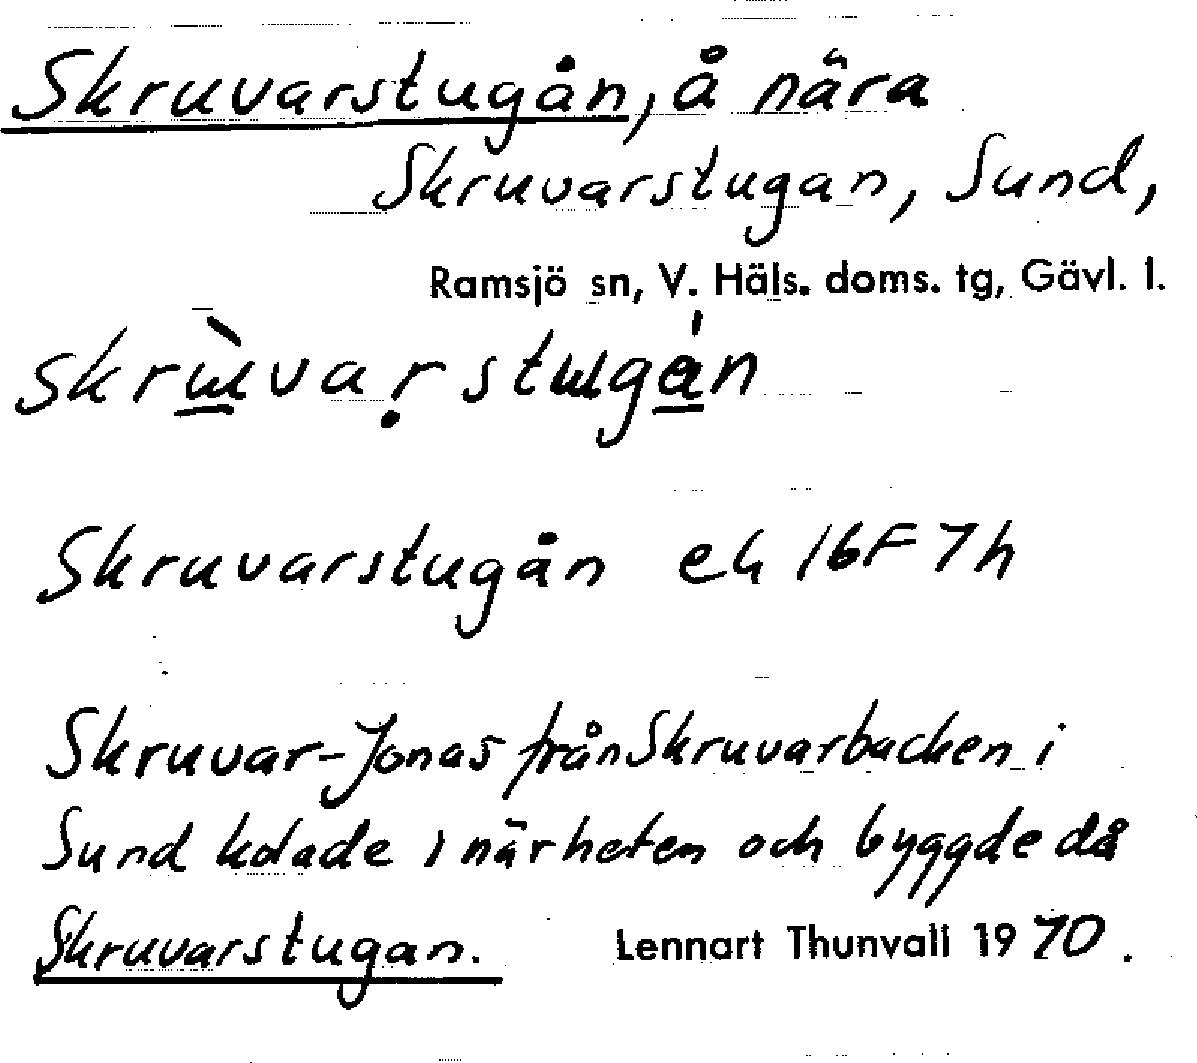 Skruvarstugån, å nära
Skruvarstugan, Sund,
Ramsjö sn, V. Häls. doms. tg, Gävl. l.
Skruvarstugån ek 16F 7h
Skruvar-Jonas från Skruvarbacken i
Sund kolade i närheten och byggde då
Skruvarstugan. Lennart Thunvall 1970.